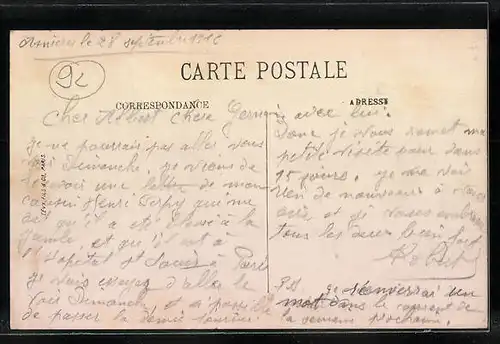 Asnières le 28 septembre 1916
92
CARTE POSTALE
CORRESPONDANCE
ADRESSE
Cher Albert chère Germaine
je ne pourrais pas aller vous
voir Dimanche, je viens de
recevoir une lettre de mon
cousin Henri qui me
dit qu'il a été blessé à la
jambe, et qu'il est à
l'hopital St Louis à Paris
je vais essayer d'aller le
voir Dimanche, et si possible
de passer la demie journée
avec lui.
Donc je vous remet ma
petite visite pour dans
15 jours, je ne vois
rien de nouveau à vous
dire et je vous embrasse
tous les deux bien fort
Robert
PS je enverrai un
mot dans le courant de
la semaine prochaine.